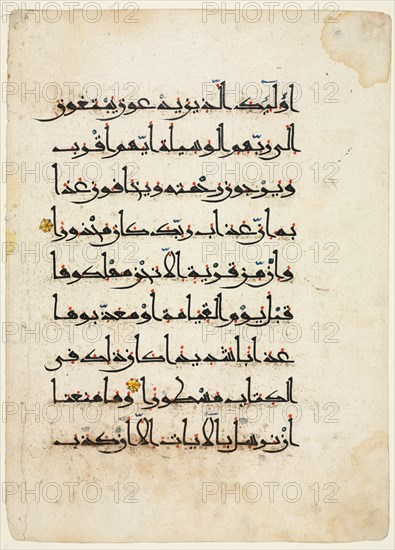 أولئك الذين يدعون يبتغون
إلى ربهم الوسيلة أيهم أقرب
ويرجون رحمته ويخافون عذا
به إن عذاب ربك كان محذورا
وإن من قرية إلا نحن مهلكوها
قبل يوم القيامة أو معذبوها
عذابا شديدا كان ذلك في
الكتاب مسطورا وما منعنا
أن نرسل بالآيات إلا أن كذب
PHOTO12